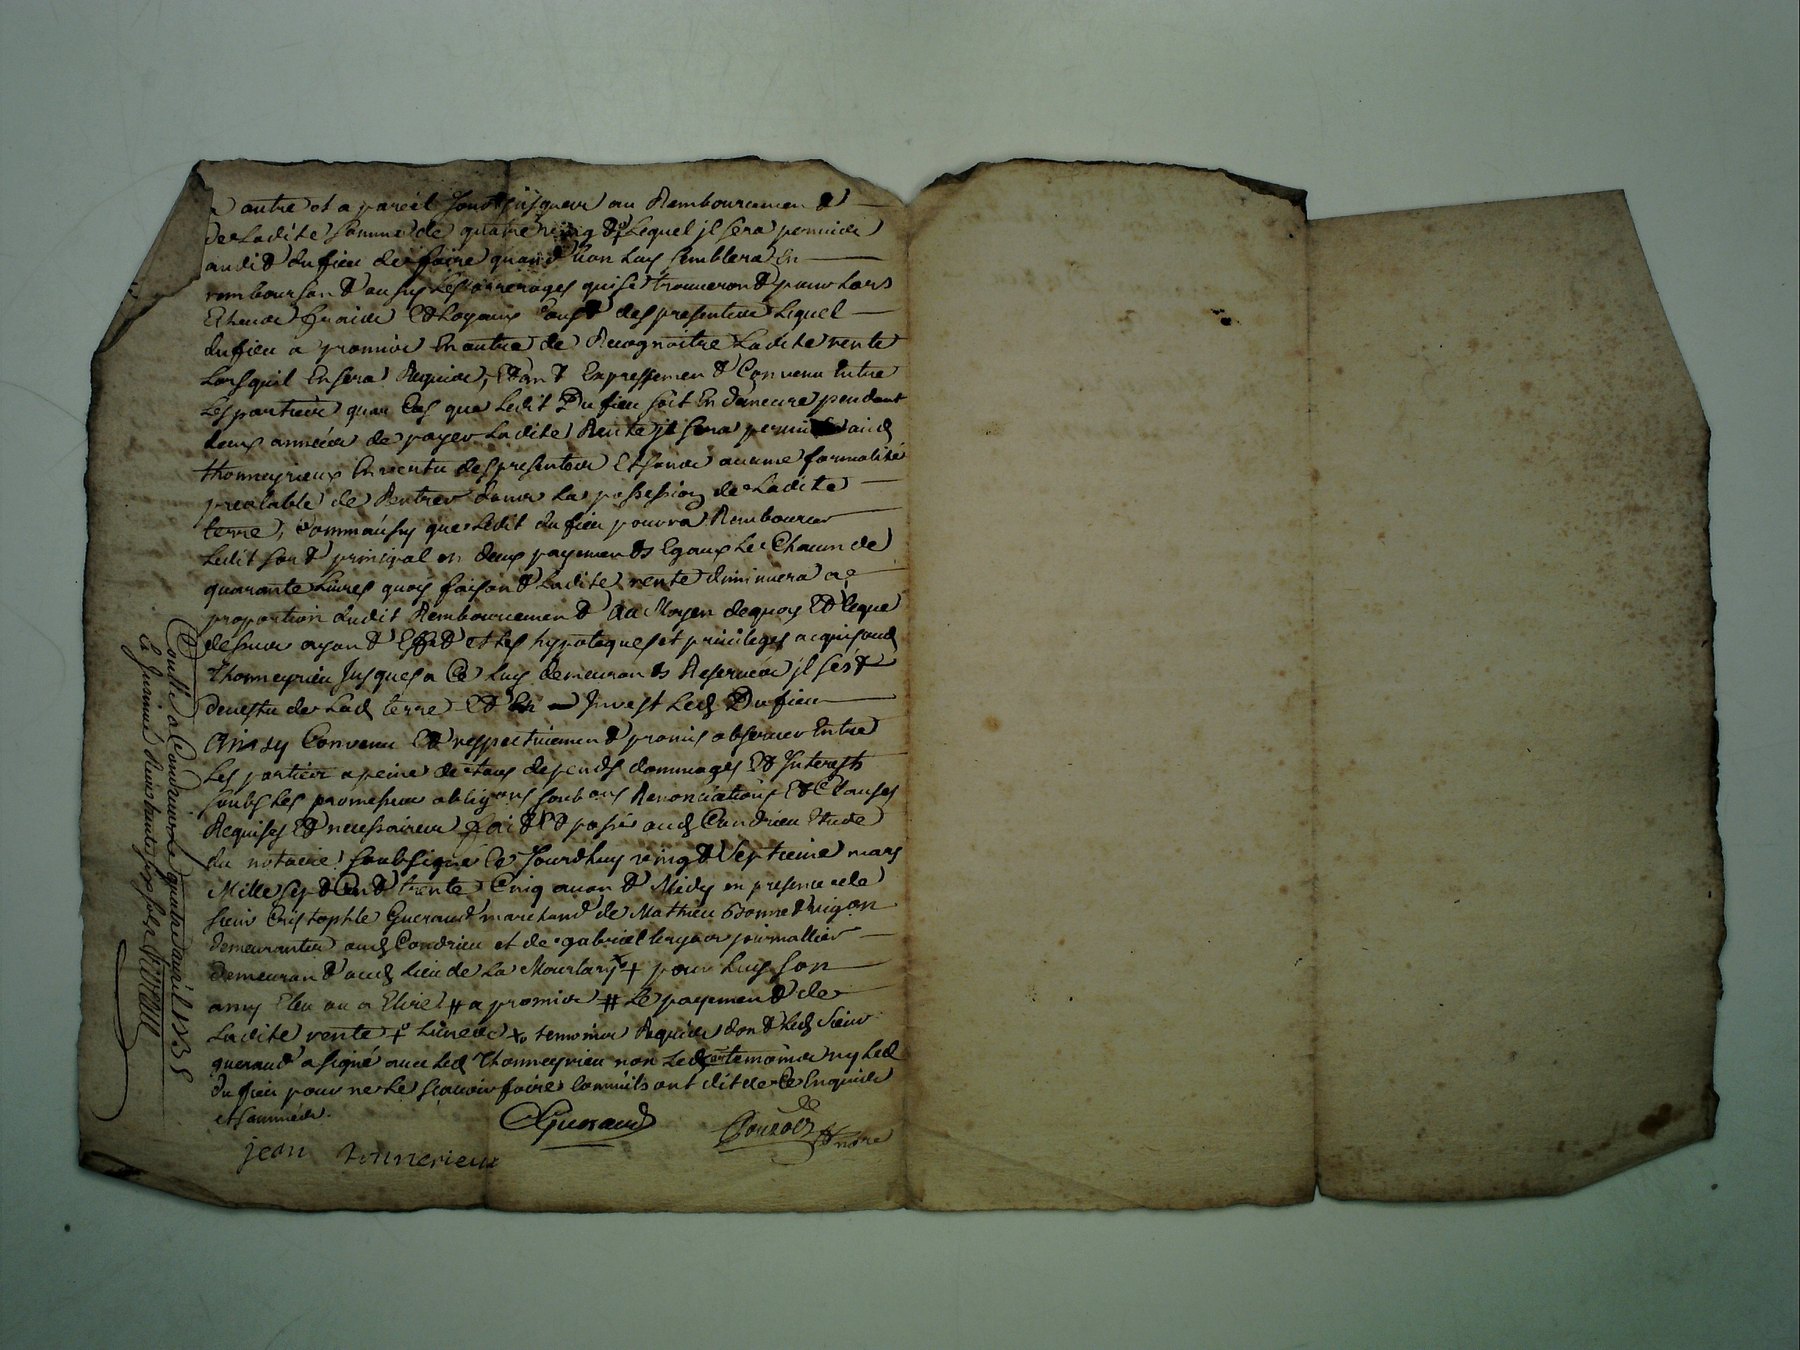 a autre et a pareil Jour Jusques au Rembourcement
de Ladite somme de quatre vingt # Lequel jl sera permis
audit dufieu de faire quand bon Luy semblera En
remboursant aussy Les arrerages qui se trouveront pour Lors
Echeus fraix Et Loyaux Coust des presentes Lequel
dufieu a promis En outre de Recognoitre Ladite rente
Lorsquil En sera Requis, Etant Expressement Convenu Entre
Les parties quau Cas que Ledit Dufieu soit En demeure pendant
deux années de payer Ladite Rente jl sera permis aud
thonneyrieux En vertu des presentes Et sans aucune formalité
prealable de Rentrer dans La possession de Ladite
terre, Comm'aussy que Ledit dufieu pourra Rembourcer
Ledit sort principal en deux payements Egaux de Chacun de
quarante Livres quoy faisant Ladite rente diminuera a
proportion dudit Rembourcement Au Moyen dequoy Et leque
dessus ayant Effet et les hypoteques et privileges acquis aud
Thonneyrieu Jusques a Ce Luy demeurants Reservées jl s'est
devestu de Lad terre Et En Jnvest Led Dufieu
Ainsy Convenu Et respectivement promis observer Entre
Les parties a peine de tous depends dommages Et Interests
soubs Les promesses obligaons soub^ons Renonciations Et Clauses
Requises Et necessaires fait Et passé aud Condrieu Etude
du notaire soubsigné Ce Jourdhuy vingt Septieme mars
Mille sept Cent trente Cinq avant Midy en presence de
sieur Cristophle Gueraud marchand de Mathieu Bonnet vigon
demeurants aud Condrieu et de gabriel journallier
demeurant aud Lieu de La + pour Luy son
amy Eleu ou a Elire # a promis # Le payement de
Ladite rente + Livres x temoins Requis dont Led Sieur
gueraud a signé avec Led Thonneyrieu non Led autre temoins ny Led
du fieu pour ne Le sçavoir faire Comm'ils ont dit de Ce Enquis
et sommés.
Gueraud
jean tonnerieux
Conllé a Condrieu Le quatre avril 1735